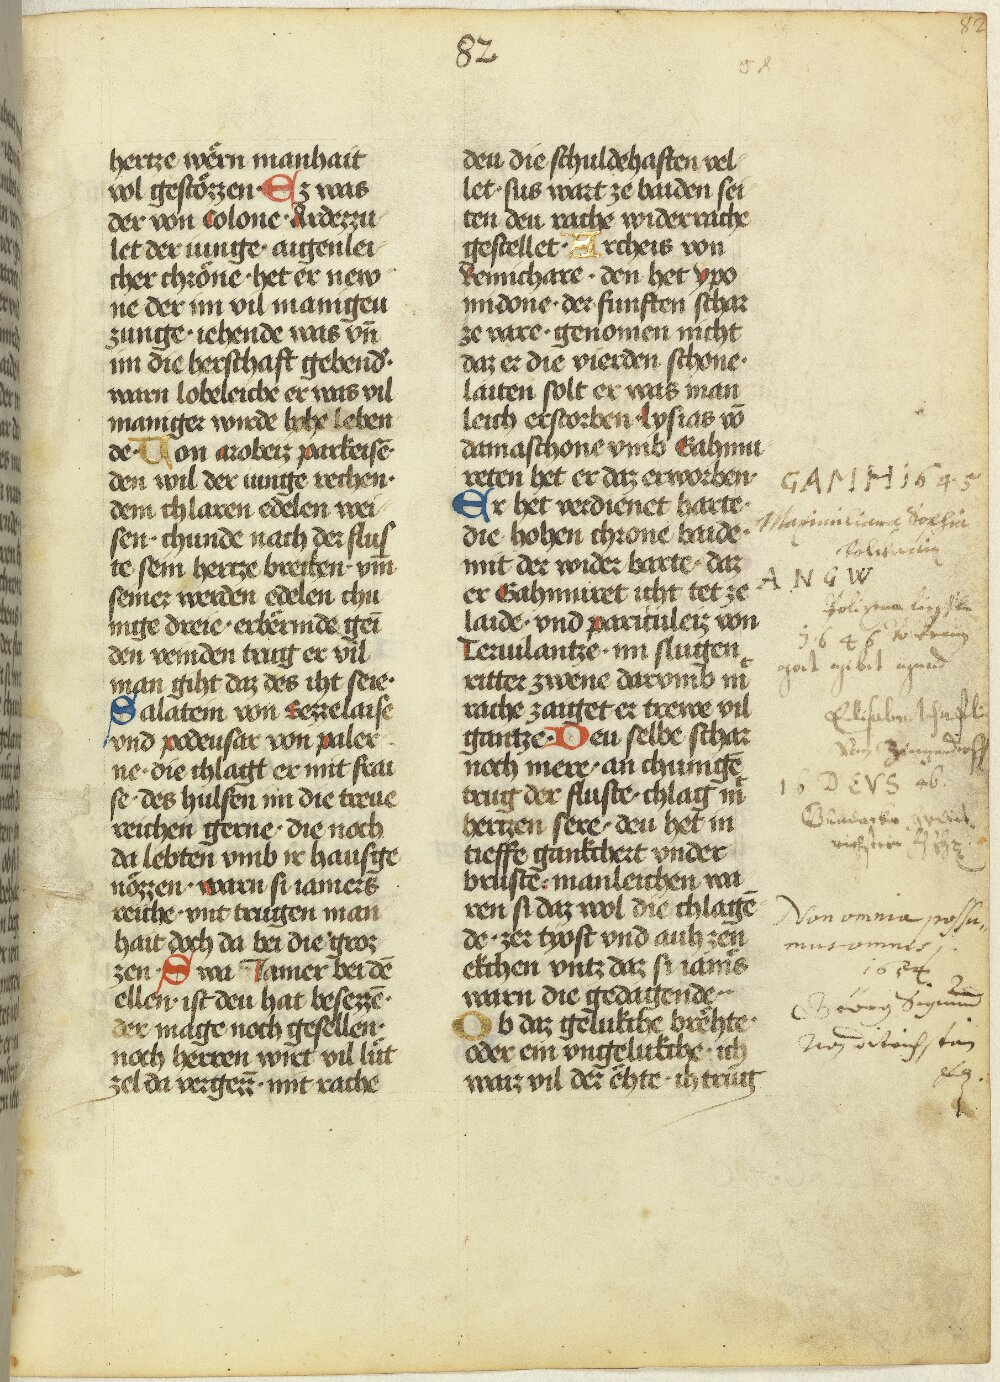 82
82
hertze wërn manhait
vol gestözzen· Ez was
der von Colone· Ardezzu
let der iunge· augenlei
cher chröne· het er new
ne der im vil manigeu
zunge· iehende was vn̄
im die herschaft gebend·
warn lobeleiche er was vil
maniger wirde hohe leben
de· Von arobeiz parkeisē
den wil der iunge rechen·
dem chlaren edelen wei
sen· chunde nach der flus
te sein hertze brechen· vm̄
seiner werden edelen chu
nige dreie· erbërmde gen̄
den veinden trug er vil
man giht daz des iht seie·
Salatem von Gezzelaise
vnd podeusar von paler
ne· die chlagt er mit frai
se· des hülfen im die treue
reichen gerne· die noch
da lebten vmb ir hausge
nözzen· warn si iamers
reiche· vnt trugen man
hait doch da bei die groz
zen· Swa Iamer bei dē
ellen· ist deu hat besezzē·
der mage noch gesellen·
noch herren wirt vil lüt
zel da vergezz· mit rache
deu die schuldehaften vel
let· sus wart ze baiden sei
ten deu rache widerrache
gestellet· Archeis von
Remchare· den het ypo
midone· der funften schar
ze vare· genomen nicht
daz er die vierden schone·
laiten solt er was man
leich erstorben· Lysias vō
damaschone vmb Gahmu
reten het er daz erworben·
Er het verdienet harte·
die hohen chrone baide·
mit der wider harte· daz
er Gahmuret icht tet ze
laide· vnd pariculeiz von
Teruilantze· im slugen
ritter zwene darvmb in
rache zaiget er trewe vil
gantze· Deu selbe schar
noch mere· an chunige
trug der fluste· chlag in
hertzen sere· deu het in
tieffe gankchert vnder
bruste· manleichen wa
ren si daz wol die chlagē
de· zer tyost vnd auh zen
ekchen vntz daz si iamers
warn die gedagende·
Ob daz gelukche brëhte·
oder ein vngelukche· ich
waiz vil der ëhte· ih trüg
GAMH 1645
A N G W
1646
16 DEVS 46
Non omnia possu
mus omnes
1654
Georg Sigmund